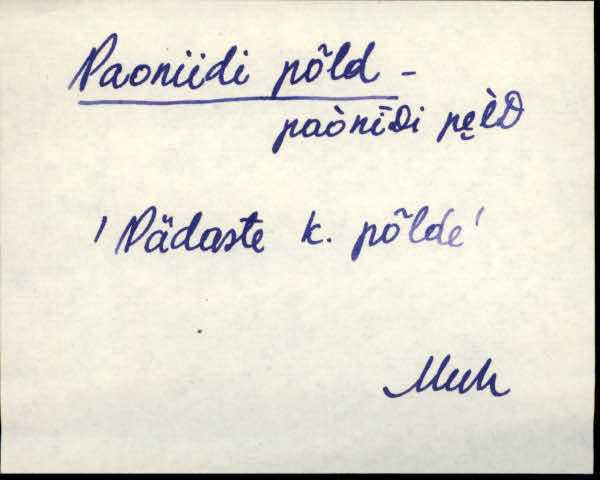 Paoniidi põld -
paònīᴅi pe̮ĺᴅ
'Pädaste k. põlde'
Muh